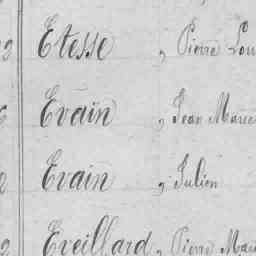 Etesse, Pierre Lou
Evain, Jean Marie
Evain, Julien
Eveillard, Pierre Mari